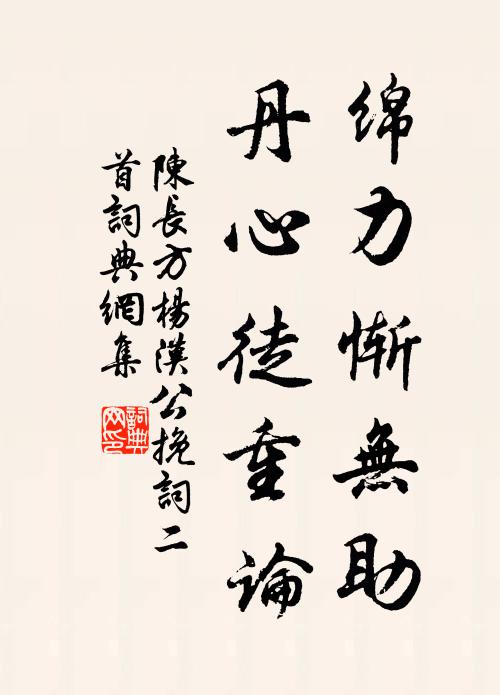 绵力惭無助
丹心徒重論
陳長方楊漢公挽詞二
首詞典網集
詞典网印